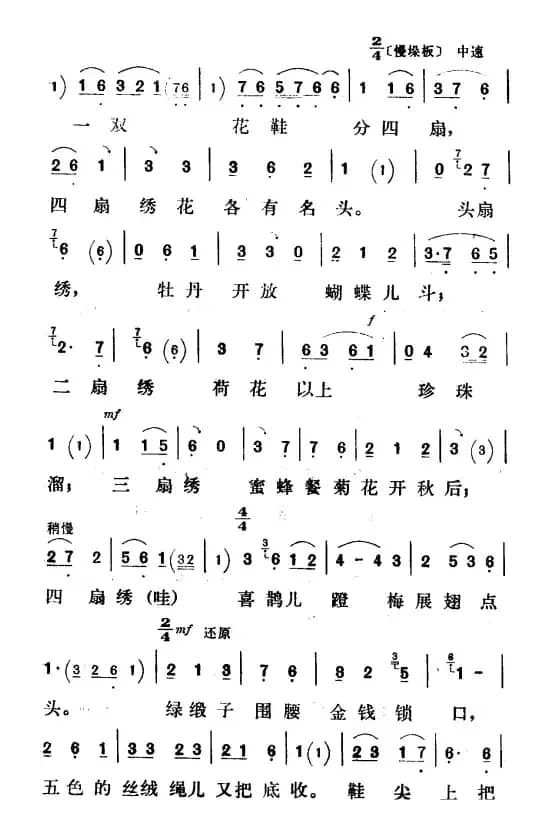 2/4〔慢垛板〕 中速
1) 1 6 3 2 1 (76 1) 7 6 5 7 6 6 1 1 6 3 7 6
一双 花鞋 分四扇，
2 6 1 3 3 3 6 2 1 (1) 0 2 7
四扇绣花各有名头。 头扇
6 (6) 0 6 1 3 3 0 2 1 2 3·7 6 5
绣， 牡丹开放 蝴蝶儿斗；
f
2· 7 6 (6) 3 7 6 3 6 1 0 4 3 2
二扇绣 荷花以上 珍珠
mf
1 (1) 1 1 5 6 0 3 7 7 6 2 1 2 3 (3)
溜； 三扇绣 蜜蜂餐菊花开秋后；
稍慢 4/4
2 7 2 5 6 1 (32 1) 3 6 1 2 4 - 4 3 2 2 1
四扇绣(哇) 喜鹊儿蹬 梅展翅点
2/4 mf 还原
1·(3 2 6 1) 2 1 3 7 6 8 2 5 1 -
头。 绿缎子围腰金钱锁口，
2 6 1 3 3 2 3 2 2 3 2 1 (1) 2 3 1 7 6· 6
五色的丝绒绳儿又把底收。 鞋尖上把